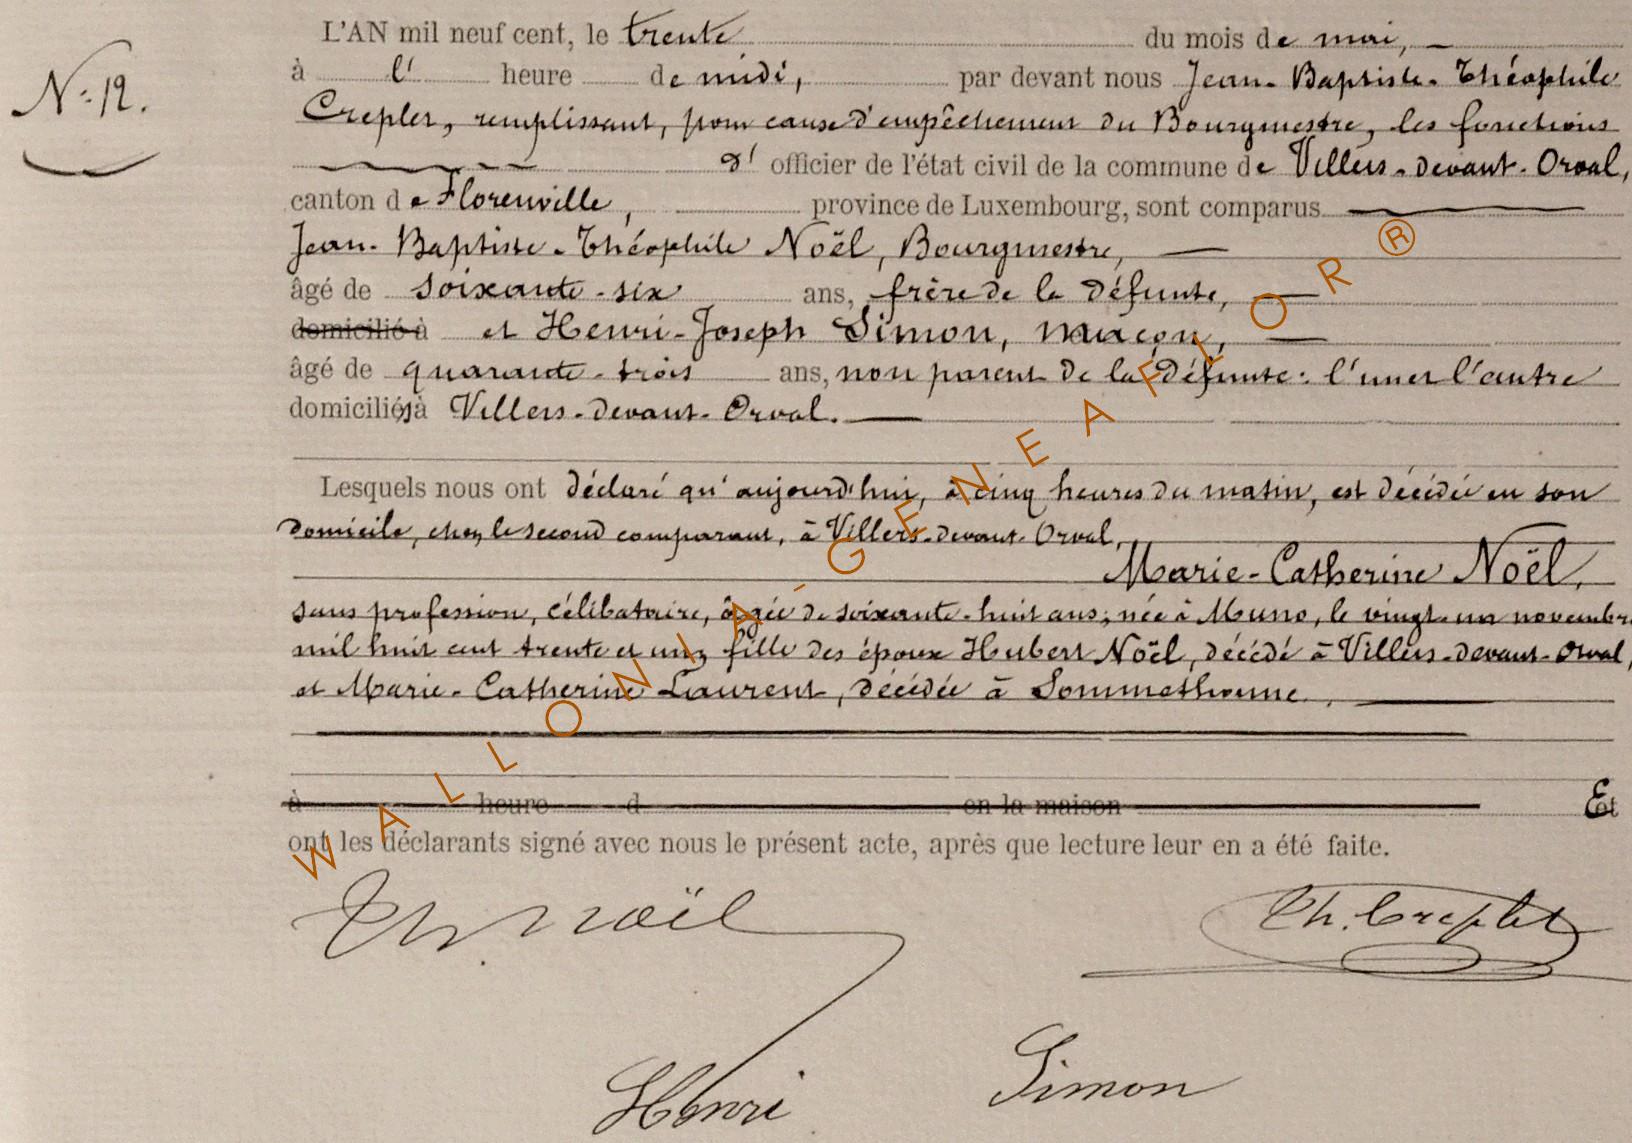 N° 12.
L'AN mil neuf cent, le trente du mois de mai,
à l' heure de midi, par devant nous Jean-Baptiste-Théophile
Creplet, remplissant, pour cause d'empêchement du Bourgmestre, les fonctions
d' officier de l'état civil de la commune de Villers-devant-Orval,
canton de Florenville, province de Luxembourg, sont comparus
Jean-Baptiste-Théophile Noël, Bourgmestre,
âgé de soixante-six ans, frère de la défunte,
domicilié à et Henri-Joseph Simon, maçon,
âgé de quarante-trois ans, non parent de la défunte: l'un et l'autre
domiciliés à Villers-devant-Orval.
Lesquels nous ont déclaré qu'aujourd'hui, à cinq heures du matin, est décédée en son
domicile, chez le second comparant, à Villers-devant-Orval,
Marie-Catherine Noël,
sans profession, célibataire, âgée de soixante-huit ans; née à Muno, le vingt-un novembre
mil huit cent trente et un, fille des époux Hubert Noël, décédé à Villers-devant-Orval,
et Marie-Catherine Laurent, décédée à Sommethonne.
à heure d en la maison Et
ont les déclarants signé avec nous le présent acte, après que lecture leur en a été faite.
Th Noël Th. Creplet
Henri Simon
WALLONIA-GENEAFLOR®